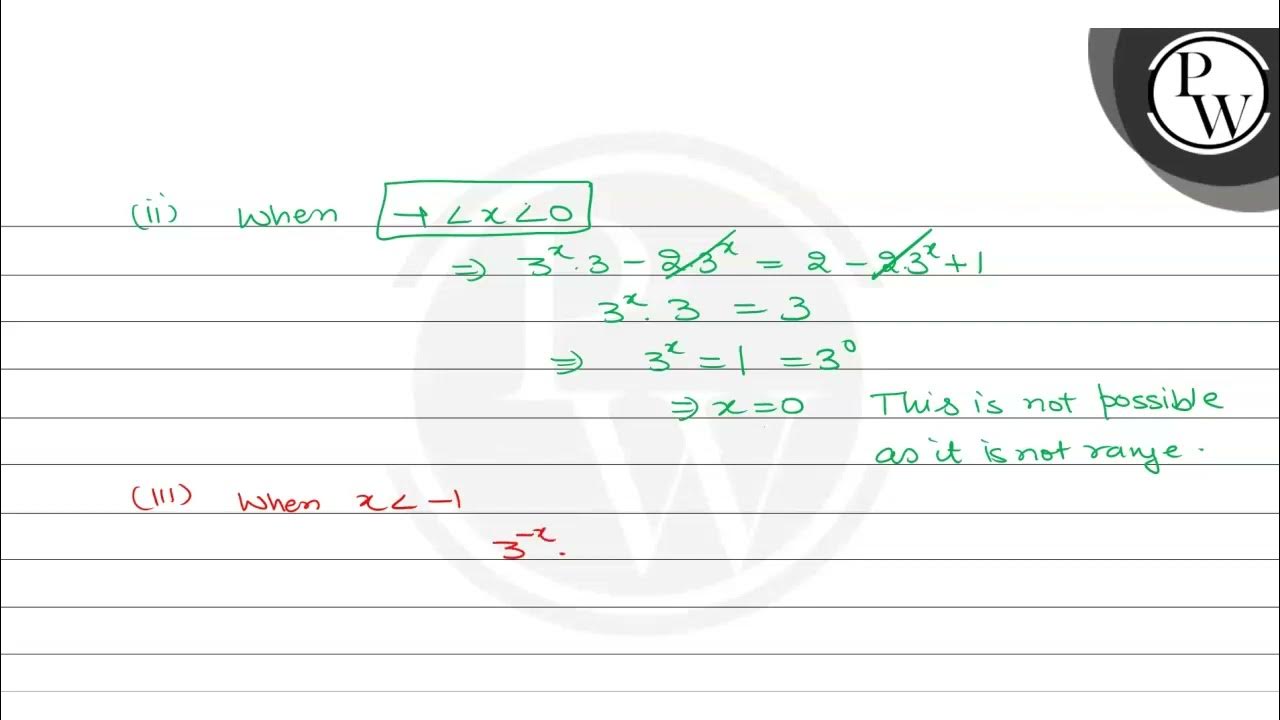 PW
(ii) When -1 < x < 0
⇒ 3^x . 3 - 2.3^x = 2 - 2.3^x + 1
3^x . 3 = 3
⇒ 3^x = 1 = 3^0
⇒ x = 0 This is not possible
as it is not range.
(III) When x < -1
3^-x .